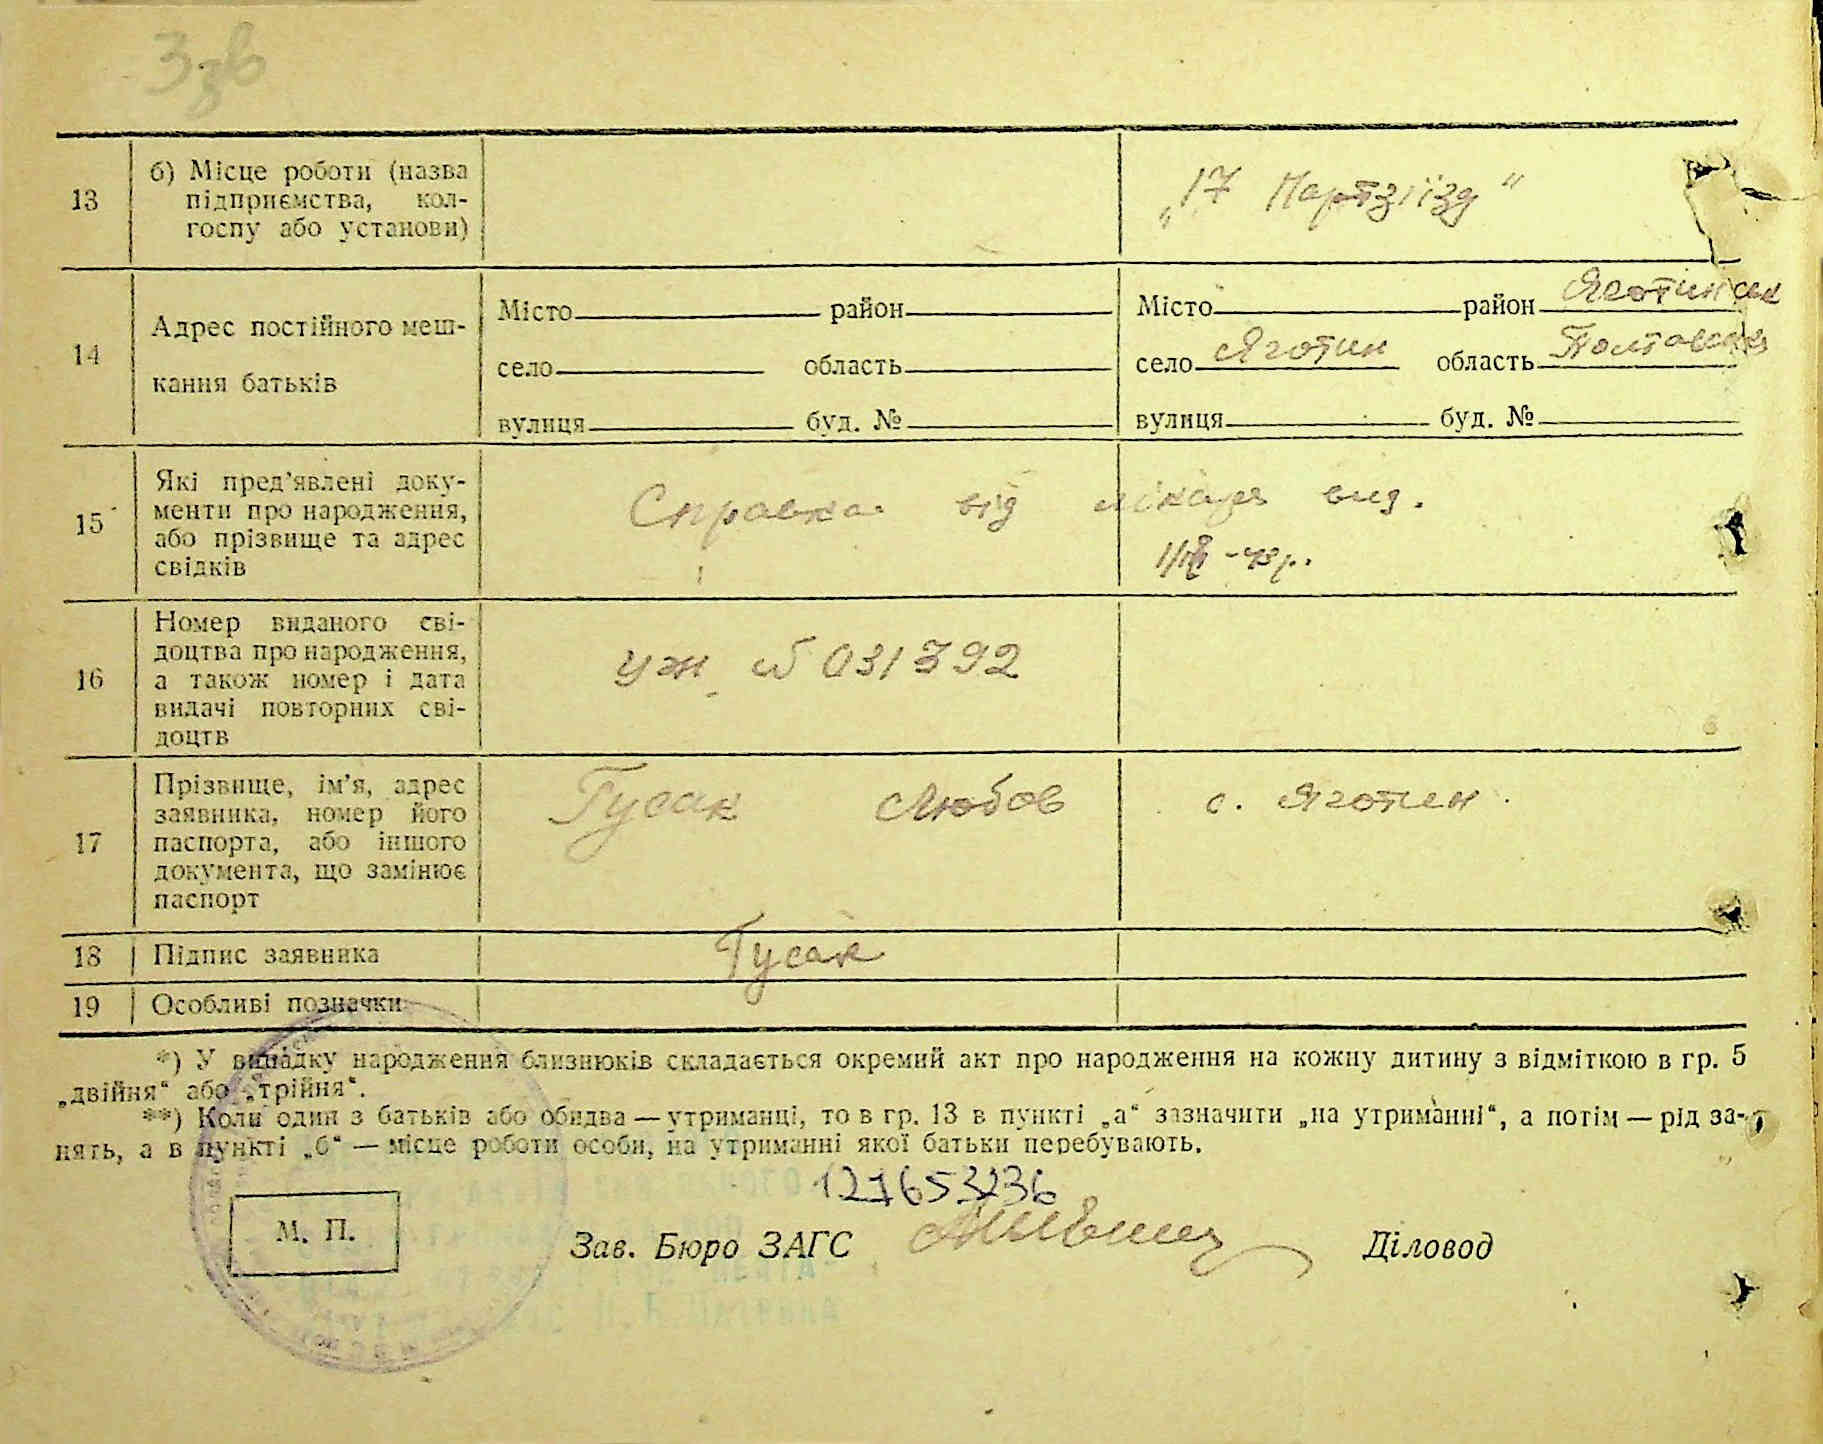 Ззв
13
б) Місце роботи (назва
підприємства, кол-
госпу або установи)
„17 Партзіїзд“
14
Адрес постійного меш-
кання батьків
Місто район
село область
вулиця буд. №
Місто район Яготинськ
село Яготин область Полтавська
вулиця буд. №
15
Які пред'явлені доку-
менти про народження,
або прізвище та адрес
свідків
Справка від лікаря вид.
16
Номер виданого сві-
доцтва про народження,
а також номер і дата
видачі повторних сві-
доцтв
УЖ № 031392
17
Прізвище, ім'я, адрес
заявника, номер його
паспорта, або іншого
документа, що замінює
паспорт
Гусак Любов с. Яготин.
18 Підпис заявника Гусак
19 Особливі позначки
*) У випадку народження близнюків складається окремий акт про народження на кожну дитину з відміткою в гр. 5
„двійня“ або „трійня“.
**) Коли один з батьків або обидва — утриманці, то в гр. 13 в пункті „а“ зазначити „на утриманні“, а потім — рід за-
нять, а в пункті „б“ — місце роботи особи, на утриманні якої батьки перебувають.
121653236
М. П.
Зав. Бюро ЗАГС
Діловод